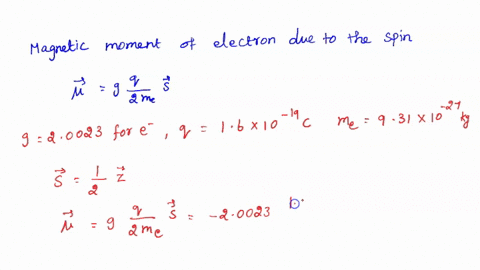 Magnetic moment of electron due to the spin
μ⃗ = g q/2me s⃗
g = 2.0023 for e⁻, q = 1.6 × 10⁻¹⁹ C me = 9.31 × 10⁻²⁷ kg
s⃗ = 1/2 z⃗
μ⃗ = g q/2me s⃗ = -2.0023